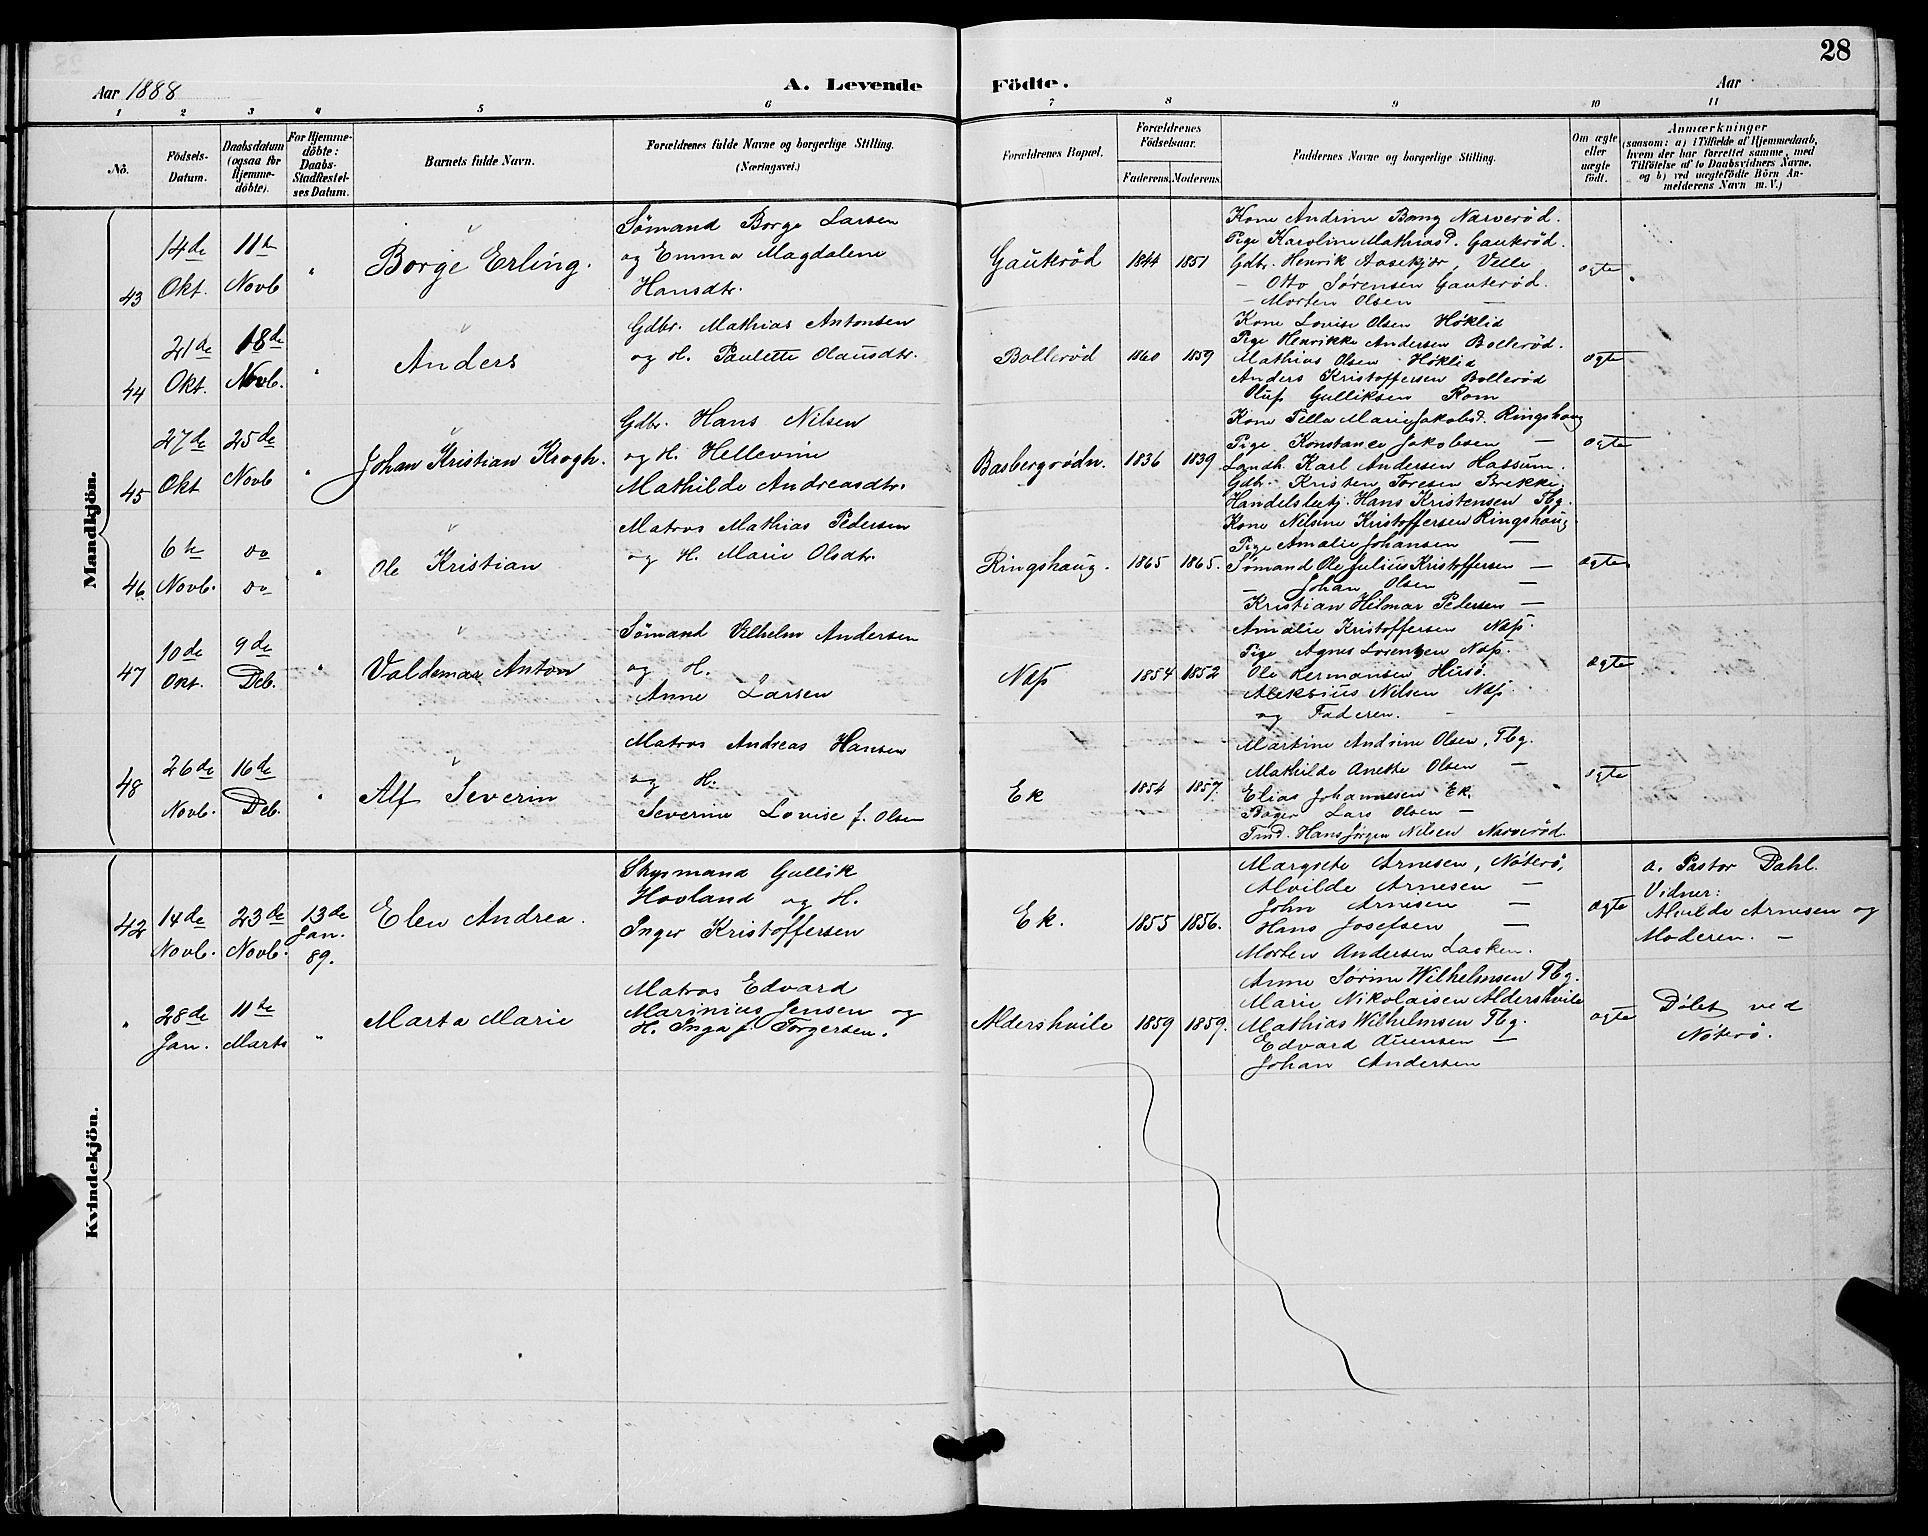 28
Aar 1888
A. Levende Födte.
Aar
1 2 3 4 5 6 7 8 9 10 11
Nô.
Födsels-Datum.
Daabsdatum (ogsaa for Hjemme-döbte).
For Hjemme-döbte: Daabs-Stadfæstelses Datum.
Barnets fulde Navn.
Forældrenes fulde Navne og borgerlige Stilling.
(Næringsvei.)
Forældrenes Bopæl.
Forældrenes Födselsaar.
Faderens. Moderens.
Faddernes Navne og borgerlige Stilling.
Om ægte eller uægte födt.
Anmærkninger
(saasom: a) i Tilfælde af Hjemmedaab,
hvem der har forrettet samme, med
Tilföielse af to Daabsvidners Navne,
og b) ved uægtefödte Börn An-
melderens Navn m. V.)
Mandkjön.
43
14de Okt.
11te Novb
"
Borge Erling.
Sømand Borge Larsen
og Emma Magdalene
Hansdtr.
Gaukrød
1844 1851
Kone Andrine Bang Narverød.
Pige Karoline Mathiasd. Gaukrød.
Gdbr. Henrik Aasekjær, Velle
— Otto Sørensen Gauterød.
— Morten Olsen —
ægte
44
21de Okt.
18de Novb.
"
Anders
Gdbr. Mathias Antonsen
og H. Paulette Olausdtr.
Bollerød
1860 1859
Kone Lovise Olsen Høklid
Pige Henrikke Andersen Bollerød.
Mathias Olsen Høklid
Anders Kristoffersen Bollerød
Oluf Gulliksen Rom
ægte
45
27de Okt
25de Novb
"
Johan Kristian Krogh.
Gdbr. Hans Nilsen
og H. Hellevine
Mathilde Andreasdtr.
Basbergrødn.
1836 1839
Kone Pella Marie Jakobsd. Ringshaug
Pige Konstance Jakobsen —
Landh. Karl Andersen Hassum.
Gdbr. Kristen Toresen Brekke.
Handelsbestj. Hans Kristensen Tbg.
ægte
46
6te Novb.
do do
"
Ole Kristian
Matros Mathias Pedersen
og H. Marie Olsdtr.
Ringshaug.
1865 1865.
Kone Nilsine Kristoffersen Ringshaug
Pige Amalie Johansen —
Sømand Ole Julius Kristoffersen —
— Johan Olsen —
Kristian Hilmar Pedersen —
ægte
47
10de Okt.
9de Deb.
"
Valdemar Anton
Sømand Vilhelm Andersen
og H.
Anne Larsen
Næs
1854 1852
Amalie Kristoffersen Næs.
Pige Agnes Lorentzen Næs.
Ole Hermansen Husø.
Aleksius Nilsen Næs
og Faderen.
ægte
48
26de Novb.
16de Deb.
"
Alf Severin
Matros Andreas Hansen
og H.
Severine Lovise f. Olsen
Ek
1854 1857.
Martine Andrine Olsen, Tbg.
Mathilde Anette Olsen —
Elias Johannesen Ek.
Bager Lars Olsen —
Tmd. Hans Jørgen Nilsen Narverød.
ægte
Kvindekjön.
42
14de Novb.
23de Novb.
13de Jan. 89.
Elen Andrea.
Gullik
Hovland og H.
Inger Kristoffersen
Ek.
1855 1856.
Margrete Arnesen, Nøterø,
Alvilde Arnesen —
John Arnesen —
Hans Josefsen —
Morten Andersen
ægte
a. Pastor Dahl.
Vidner:
Alvilde Arnesen og
Moderen. —
"
28de Jan.
11te Marts
"
Marta Marie
Matros Edvard
Marinius Jensen og
H. Inga f. Torgersen.
Aldershvile
1859 1859.
Anne Sørine Wilhelmsen Tbg.
Marie Nikolaisen Aldershvile
Mathias Wilhelmsen Tbg.
Edvard —
Johan Andersen
ægte
Døbt ved
Nøterø.